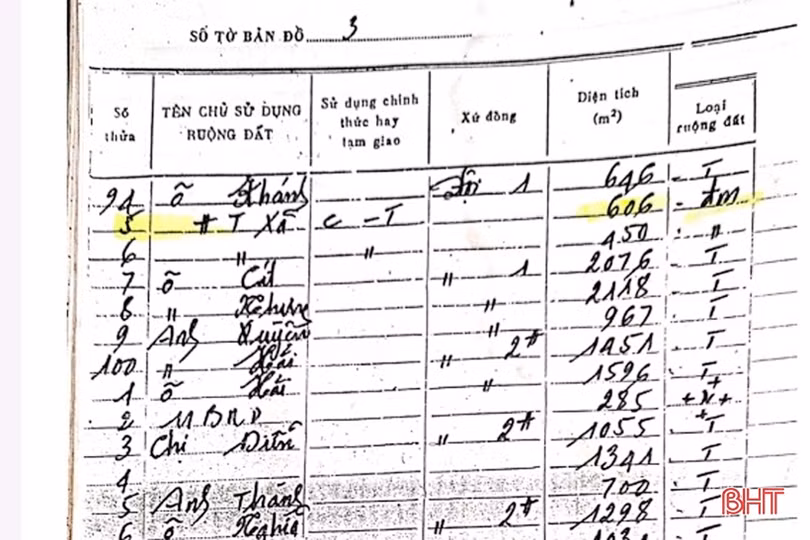 SỐ TỜ BẢN ĐỒ 3
Số thửa TÊN CHỦ SỬ DỤNG RUỘNG ĐẤT Sử dụng chính thức hay tạm giao Xứ đồng Diện tích (m²) Loại ruộng đất
94 ô Khánh 1 646 T
5 # T Xã C - T 606 - ĐM
6 " " 450 "
7 ô Cát " 1 2076 - T
8 " " 2118 - T
9 Anh Luyến " 967 T
100 " Hải " 2# 1451 - T
1 ô Hải " 1596 T
2 UBND 285 + N +
3 Chị " 2# 1055 T
4 1341 - T
5 Anh Thắng 700 - T
6 ô Nghĩa " 2# 1298 T
BHT